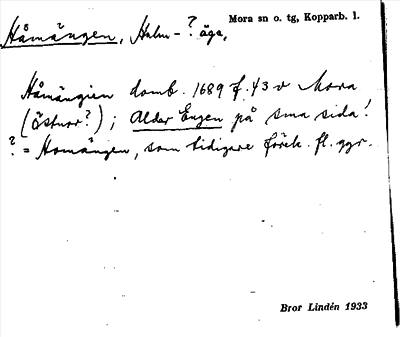 Håmängen, Holm-? äga,
Mora sn o. tg, Kopparb. l.
Håmängien domb. 1689 f. 43 v Mora
(Östnor?); Alder Engen på sma sida!
? = Homängen, som tidigare förek. fl. ggr.
Bror Lindén 1933